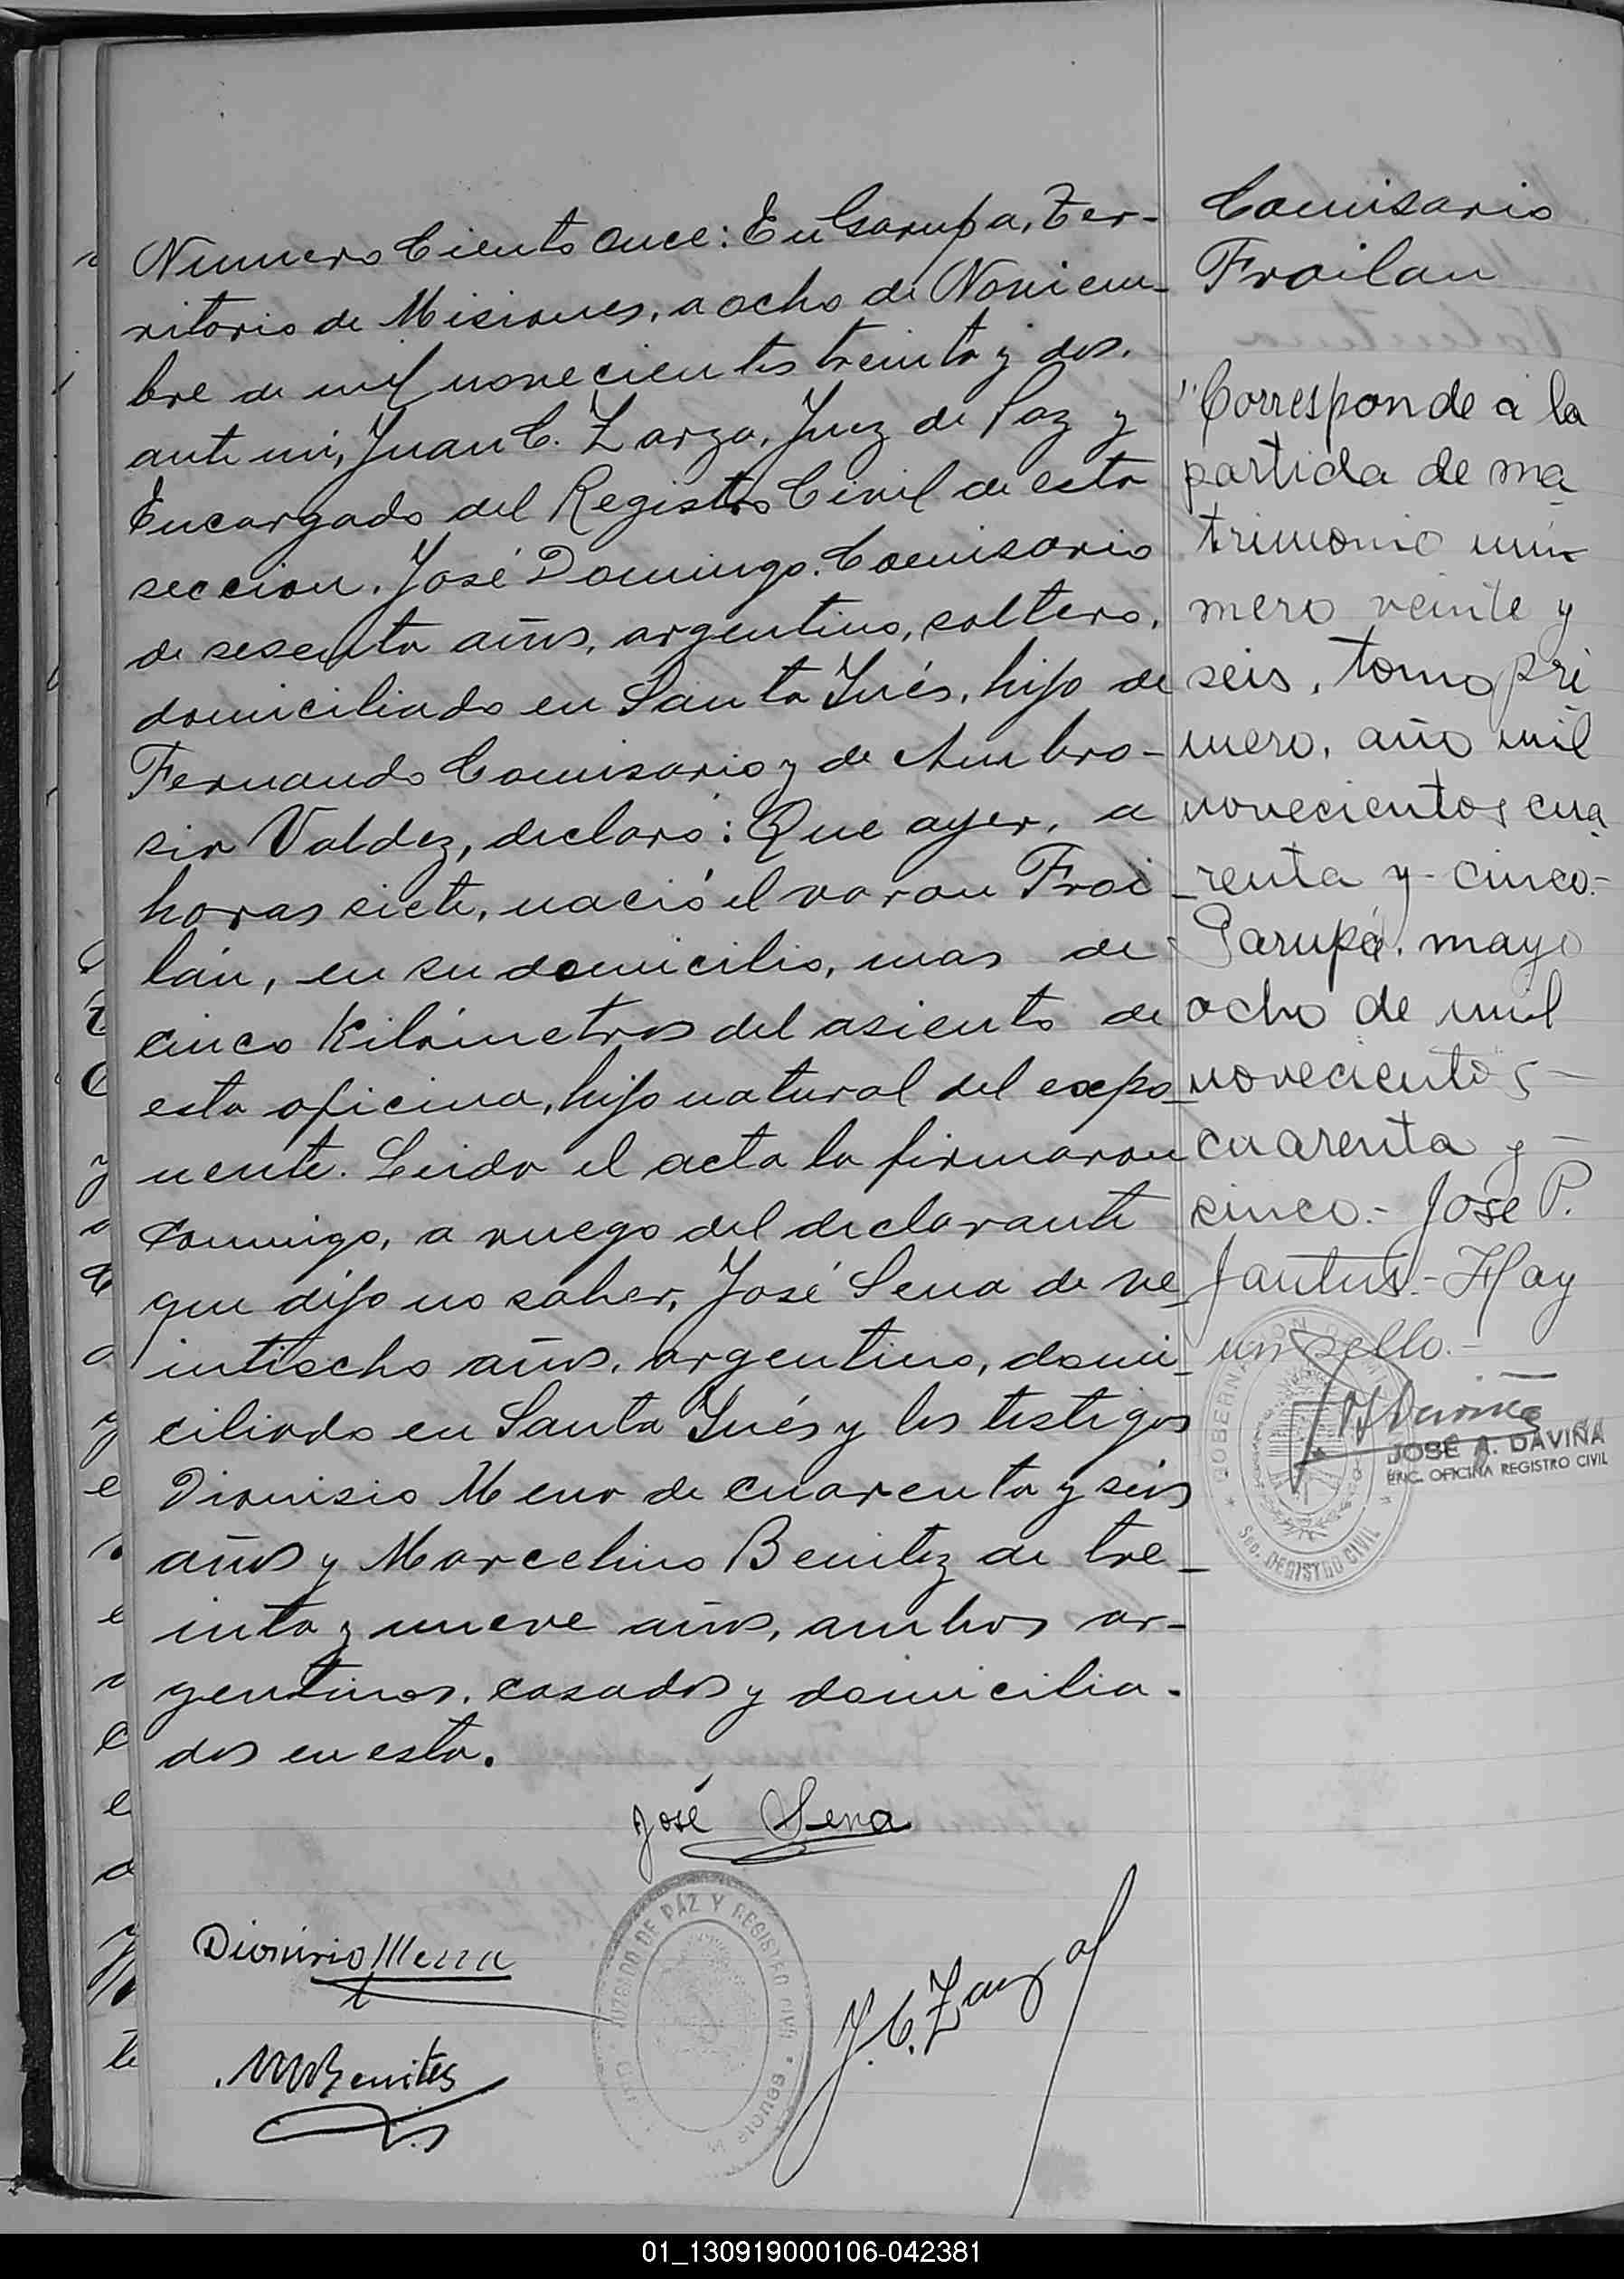 Numero Ciento Once: En Garupa, Ter-
ritorio de Misiones, a ocho de Noviem-
bre de mil novecientos treinta y dos.
ante mi, Juan C. Zarza, Juez de Paz y
Encargado del Registro Civil de esta
seccion, José Domingo Comisario
de sesenta años, argentino, soltero,
domiciliado en Santa Inés, hijo de
Fernando Comisario y de Ambro-
sia Valdez, declaró: Que ayer, a
horas siete, nació el varon Froi-
lán, en su domicilio, mas de
cinco Kilómetros del asiento de
esta oficina, hijo natural del expo-
nente. Leida el acta la firmaron
conmigo, a ruego del declarante
que dijo no saber, José Sena de ve-
intiocho años, argentino, domi-
ciliado en Santa Inés y los testigos
Dionisio Mena de cuarenta y seis
años y Marcelino Benitez de tre-
inta y nueve años, ambos ar-
gentinos, casados y domicilia-
dos en esta.
José Sena
Dionisio Mena
M Benites
J. C. Zarza
JUZGADO DE PAZ Y REGISTRO CIVIL
Comisario
Froilan
"Corresponde a la
partida de ma-
trimonio nú-
mero veinte y
seis, tomo pri-
mero, año mil
novecientos cua-
renta y cinco.-
Garupá, mayo
ocho de mil
novecientos-
cuarenta y-
cinco.- Jose P.
Hay
un sello.-
JOSE A. DAVIÑA
ENC. OFICINA REGISTRO CIVIL
REGISTRO CIVIL
01_130919000106-042381